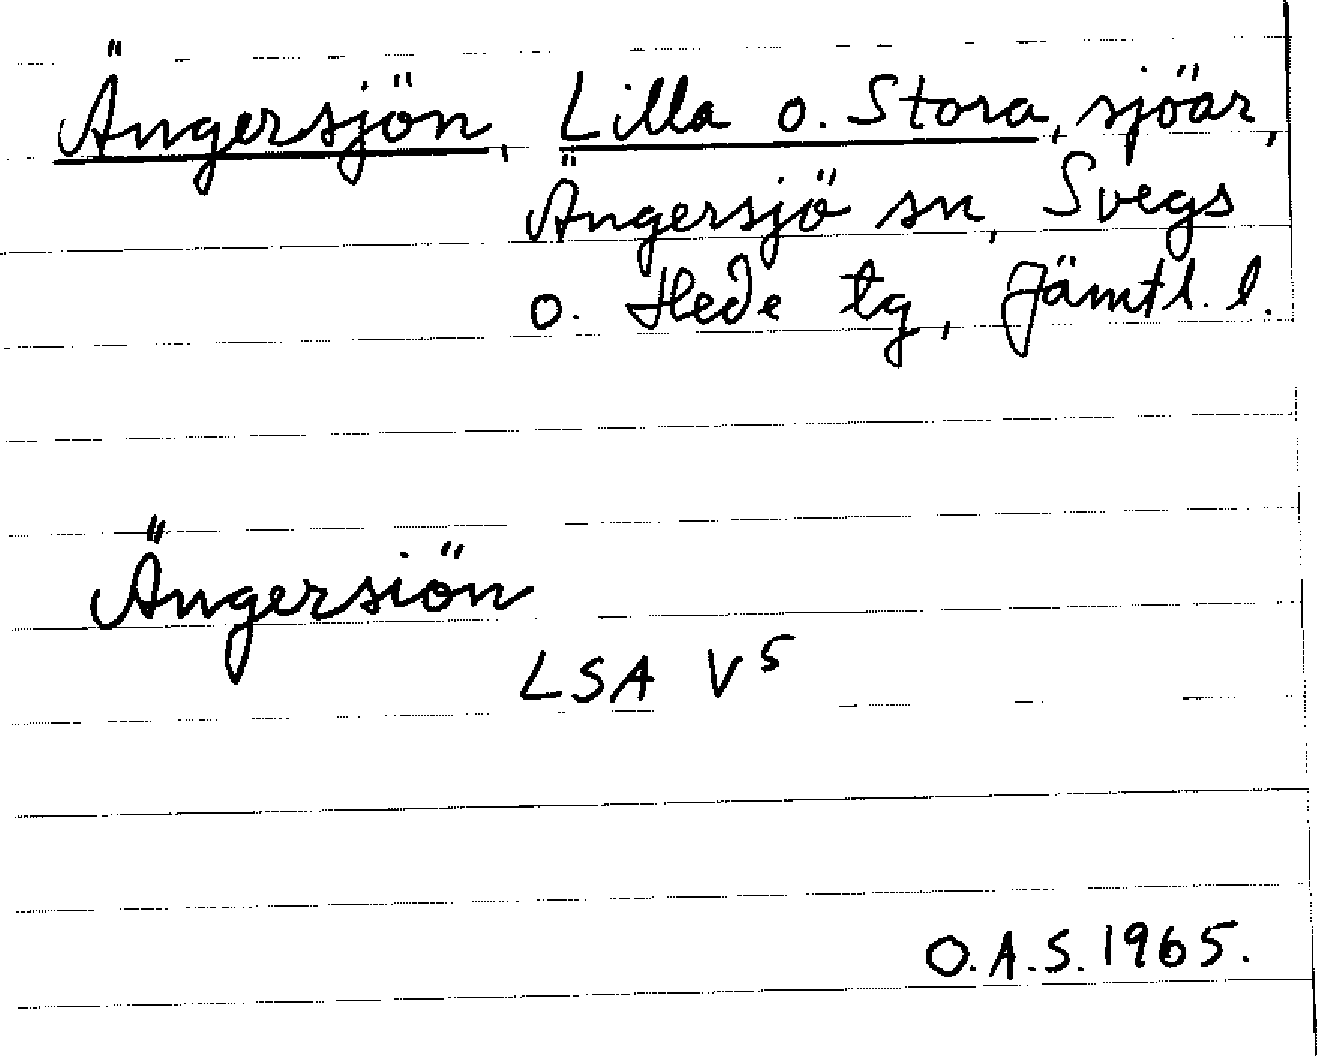 Ängersjön, Lilla o. Stora, sjöar,
Ängersjö sn, Svegs
o. Hede tg, Jämtl. l.
Ängersiön
LSA V5
O.A.S. 1965.